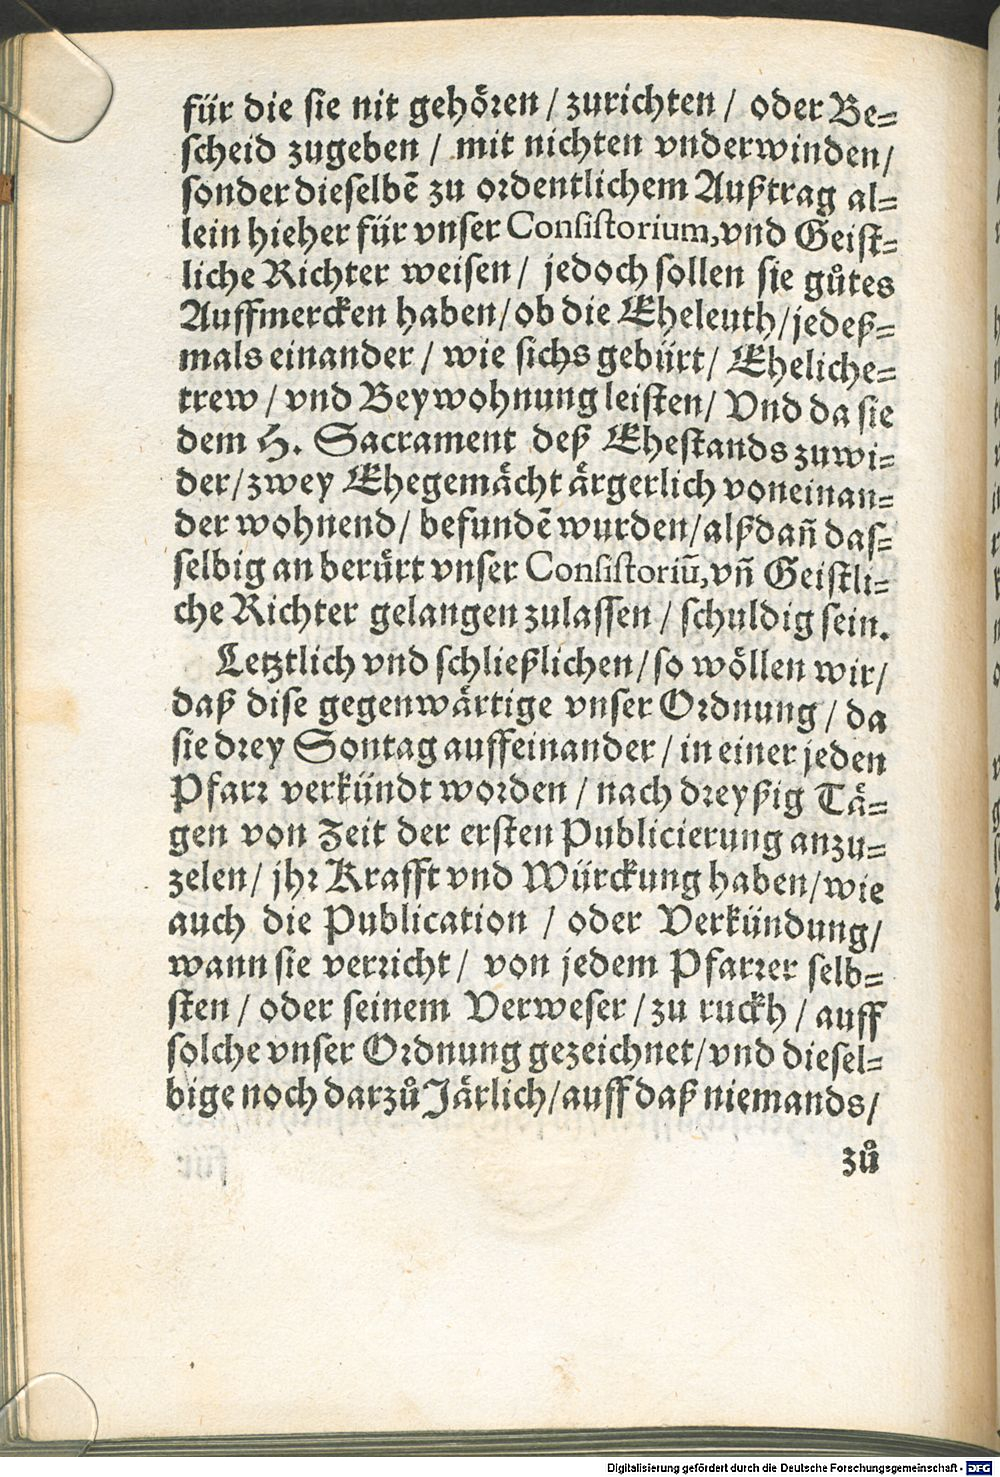 für die sie nit gehoͤren / zurichten / oder Be⸗
scheid zugeben / mit nichten vnderwinden /
sonder dieselbē zu ordentlichem Außtrag al⸗
lein hieher für vnser Consistorium, vnd Geist⸗
liche Richter weisen / jedoch sollen sie guͦtes
Auffmercken haben / ob die Eheleuth / jedeß⸗
mals einander / wie sichs gebürt / Eheliche⸗
trew / vnd Beywohnung leisten / Vnd da sie
dem H. Sacrament deß Ehestands zuwi⸗
der / zwey Ehegemaͤcht aͤrgerlich voneinan⸗
der wohnend / befundē wurden / alßdañ das⸗
selbig an berürt vnser Consistoriū, vñ Geistli⸗
che Richter gelangen zulassen / schuldig sein.
Letztlich vnd schließlichen / so woͤllen wir /
daß dise gegenwaͤrtige vnser Ordnung / da
sie drey Sontag auffeinander / in einer jeden
Pfarr verkündt worden / nach dreyßig Taͤ⸗
gen von Zeit der ersten Publicierung anzu⸗
zelen / jhr Krafft vnd Würckung haben / wie
auch die Publication / oder Verkündung /
wann sie verricht / von jedem Pfarrer selb⸗
sten / oder seinem Verweser / zu ruckh / auff
solche vnser Ordnung gezeichnet / vnd diesel⸗
bige noch darzuͦ Jaͤrlich / auff daß niemands /
zuͦ
Digitalisierung gefördert durch die Deutsche Forschungsgemeinschaft - DFG